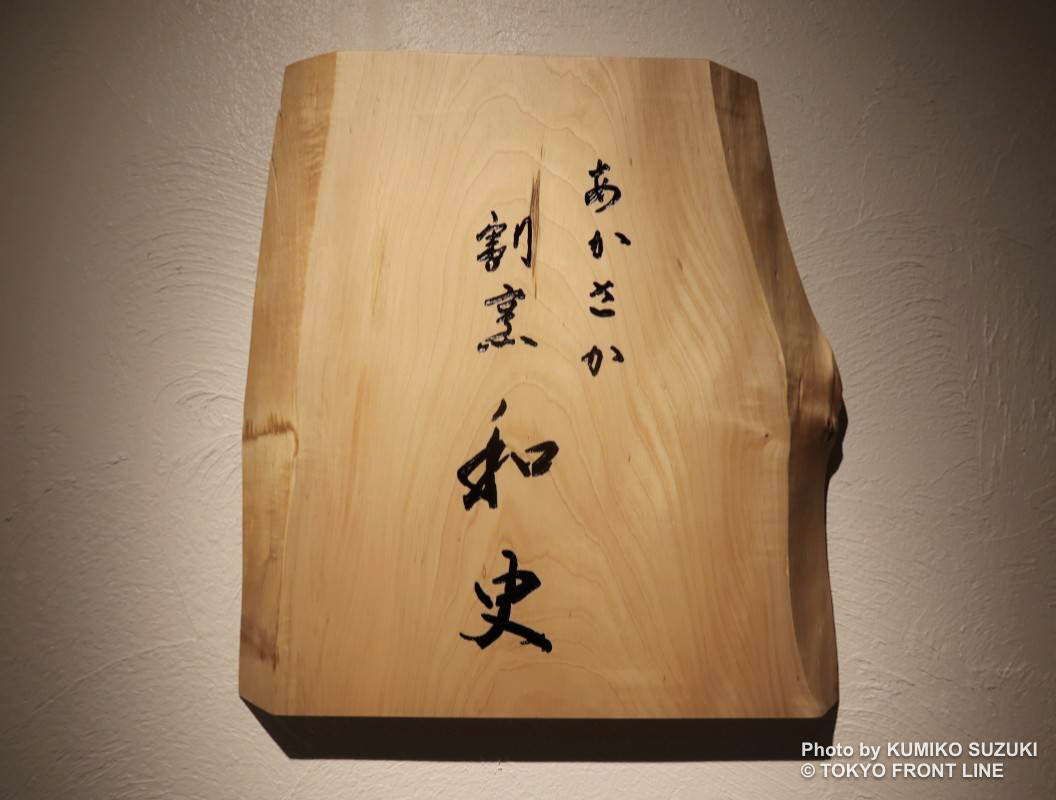 あかさか
割烹 和史
Photo by KUMIKO SUZUKI
© TOKYO FRONT LINE